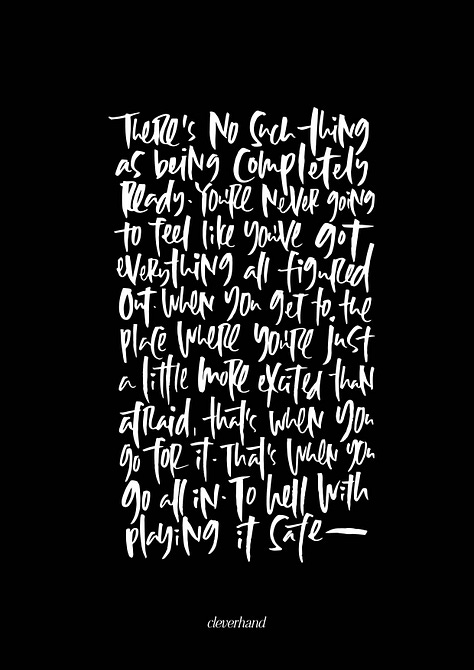 There's no such thing
as being completely
ready. You're never going
to feel like you've got
everything all figured
out. When you get to the
place where you're just
a little more excited than
afraid, that's when you
go for it. That's when you
go all in. To hell with
playing it safe—
cleverhand